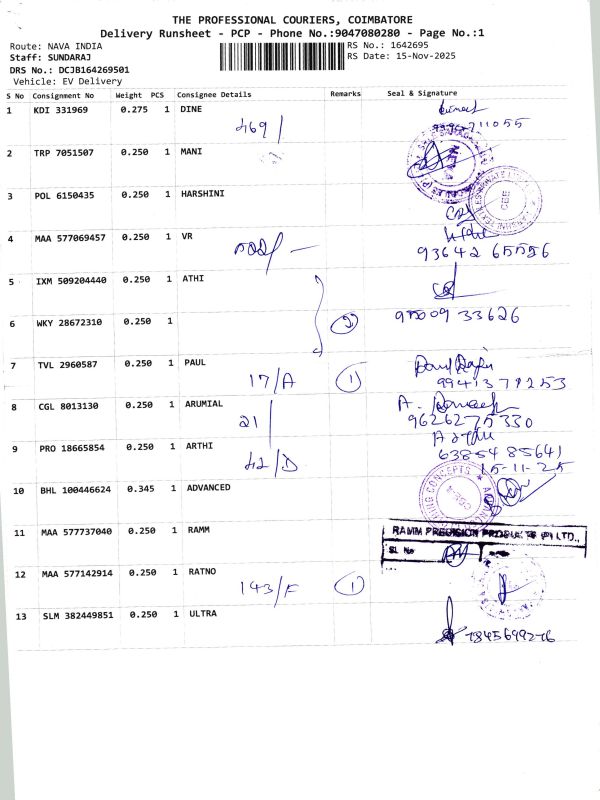 THE PROFESSIONAL COURIERS, COIMBATORE
Delivery Runsheet - PCP - Phone No.:9047080280 - Page No.:1
Route: NAVA INDIA RS No.: 1642695
Staff: SUNDARAJ RS Date: 15-Nov-2025
DRS No.: DCJB164269501
Vehicle: EV Delivery
S No Consignment No Weight PCS Consignee Details Remarks Seal & Signature
1 KDI 331969 0.275 1 DINE
469/
2 TRP 7051507 0.250 1 MANI
3 POL 6150435 0.250 1 HARSHINI
4 MAA 577069457 0.250 1 VR
93642 65556
5 IXM 509204440 0.250 1 ATHI
6 WKY 28672310 0.250 1
2 95009 33626
7 TVL 2960587 0.250 1 PAUL
17/A 1 9941371253
8 CGL 8013130 0.250 1 ARUMIAL
21 9626275330
9 PRO 18665854 0.250 1 ARTHI
42/D 63854 85641
15-11-25
10 BHL 100446624 0.345 1 ADVANCED
11 MAA 577737040 0.250 1 RAMM
RAMM PRECISION PRODUCTS (P) LTD.,
SL No
12 MAA 577142914 0.250 1 RATNO
143/F 1
13 SLM 382449851 0.250 1 ULTRA
7845699276